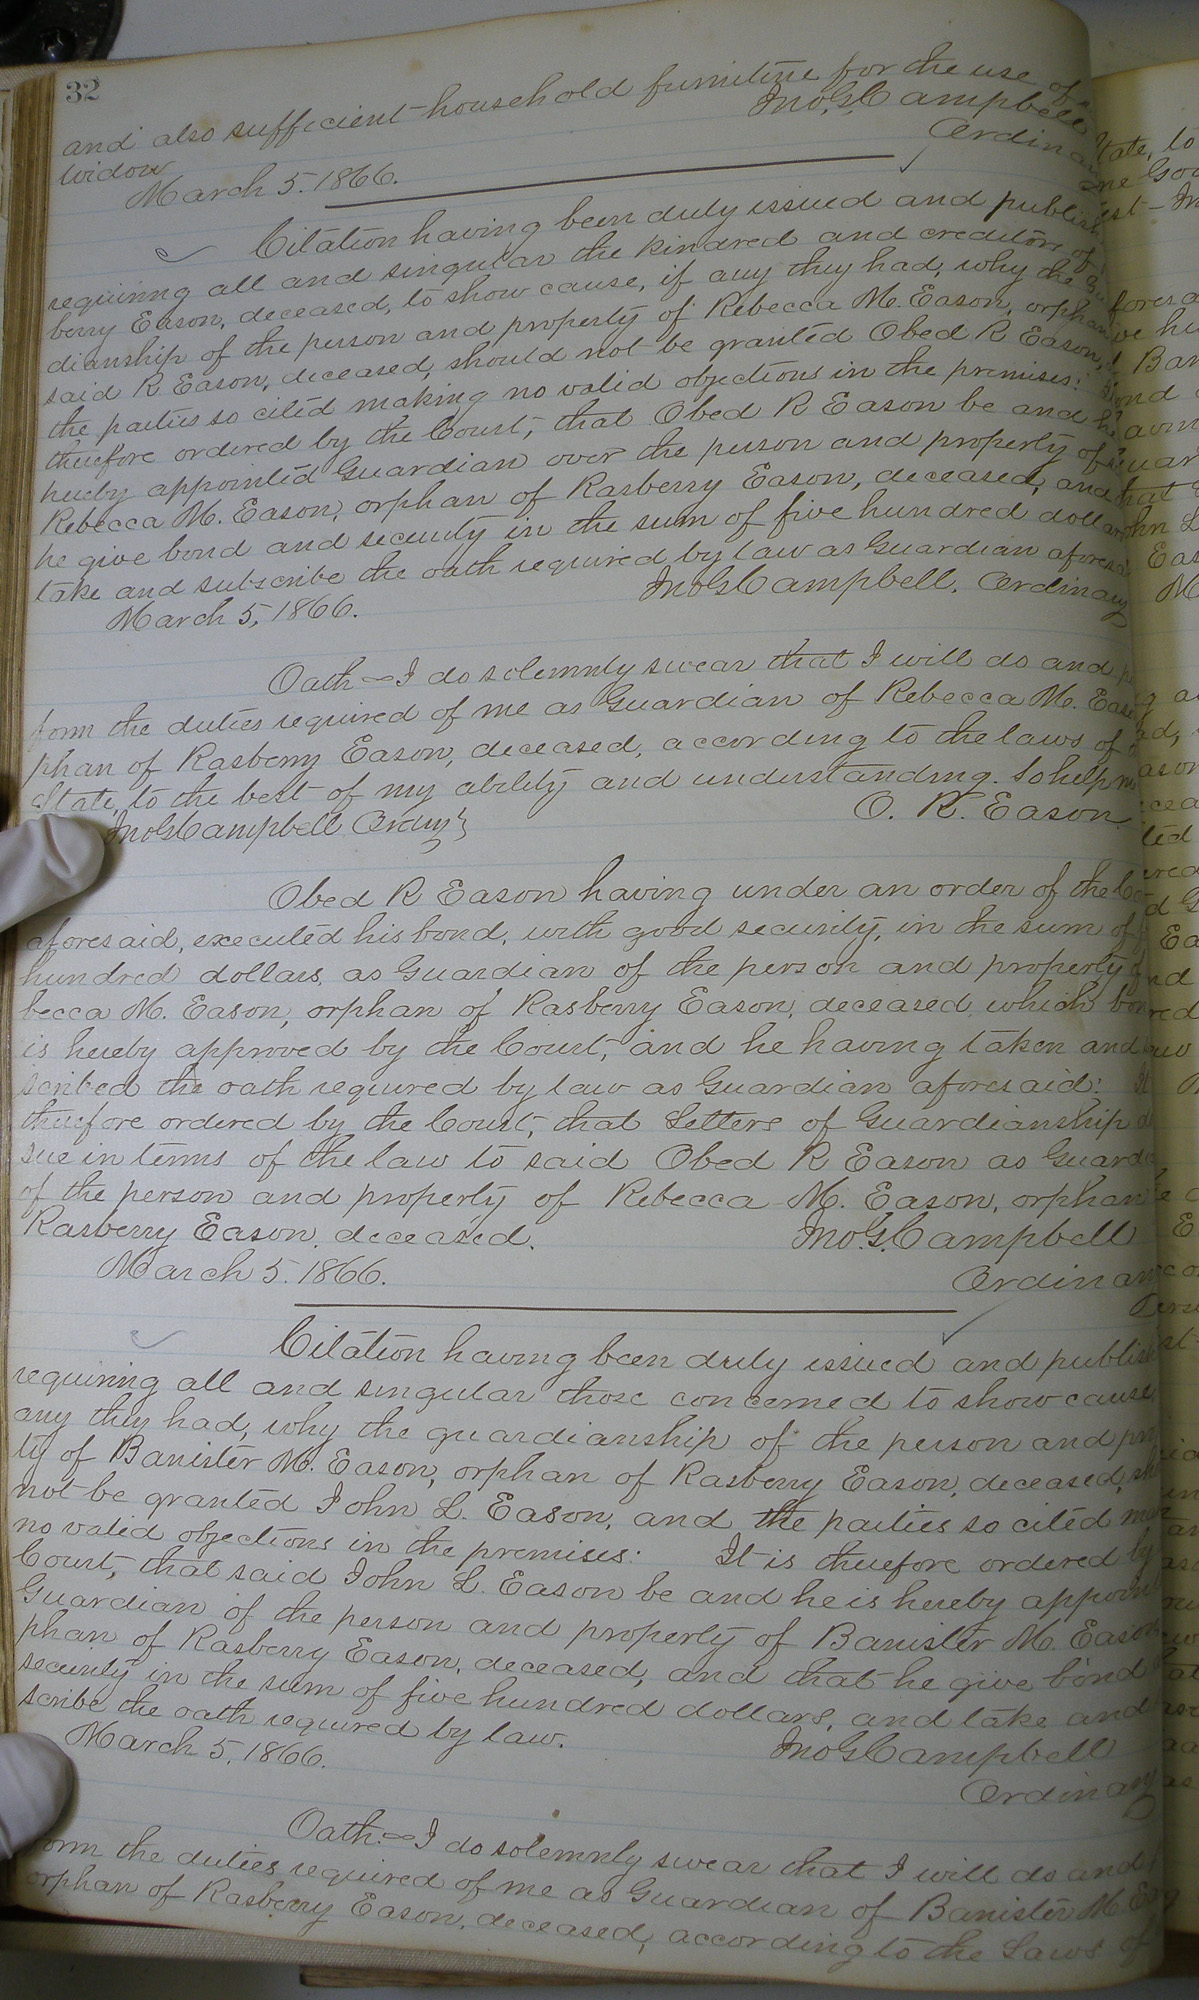 32
and also sufficient household furniture for the use of
widow
Jno. G. Campbell
Ordina
March 5. 1866.
Citation having been duly issued and publish
requiring all and singular the kindred and creditors of
berry Eason, deceased, to show cause, if any they had, why the
dianship of the person and property of Rebecca M. Eason, orphan
said R Eason, deceased, should not be granted Obed R Eason,
the parties so cited making no valid objections in the premises:
therefore ordered by the Court, that Obed R Eason be and he
hereby appointed Guardian over the person and property of
Rebecca M. Eason, orphan of Rasberry Eason, deceased, and
he give bond and security in the sum of five hundred dollars
take and subscribe the oath required by law as Guardian aforesa
Jno G Campbell, Ordinary
March 5, 1866.
Oath — I do solemnly swear that I will do and p
form the duties required of me as Guardian of Rebecca M. Easo
phan of Rasberry Eason, deceased, according to the laws of
State, to the best of my ability and understanding. So help m
Jno G Campbell Ordy}
O. R. Eason
Obed R Eason having under an order of the Co
aforesaid, executed his bond, with good security, in the sum of
hundred dollars, as Guardian of the person and property of
becca M. Eason, orphan of Rasberry Eason, deceased, which bon
is hereby approved by the Court, and he having taken and
scribed the oath required by law as Guardian aforesaid: It
therefore ordered by the Court, that Letters of Guardianship
sue in terms of the law to said Obed R Eason as Guardi
of the person and property of Rebecca M. Eason, orphan
Rasberry Eason, deceased.
Jno. G. Campbell
March 5. 1866.
Ordinary
Citation having been duly issued and publish
requiring all and singular those concerned to show cause,
any they had, why the guardianship of the person and pro
ty of Banister M. Eason, orphan of Rasberry Eason, deceased, sh
not be granted John L. Eason, and the parties so cited mak
no valid objections in the premises: It is therefore ordered by
Court, that said John L. Eason be and he is hereby appoint
Guardian of the person and property of Banister M. Eason
phan of Rasberry Eason, deceased, and that he give bond
security in the sum of five hundred dollars, and take and
scribe the oath required by law.
Jno G Campbell
March 5, 1866.
Ordinary
Oath: — I do solemnly swear that I will do and
form the duties required of me as Guardian of Banister M. Ea
orphan of Rasberry Eason, deceased, according to the Laws of